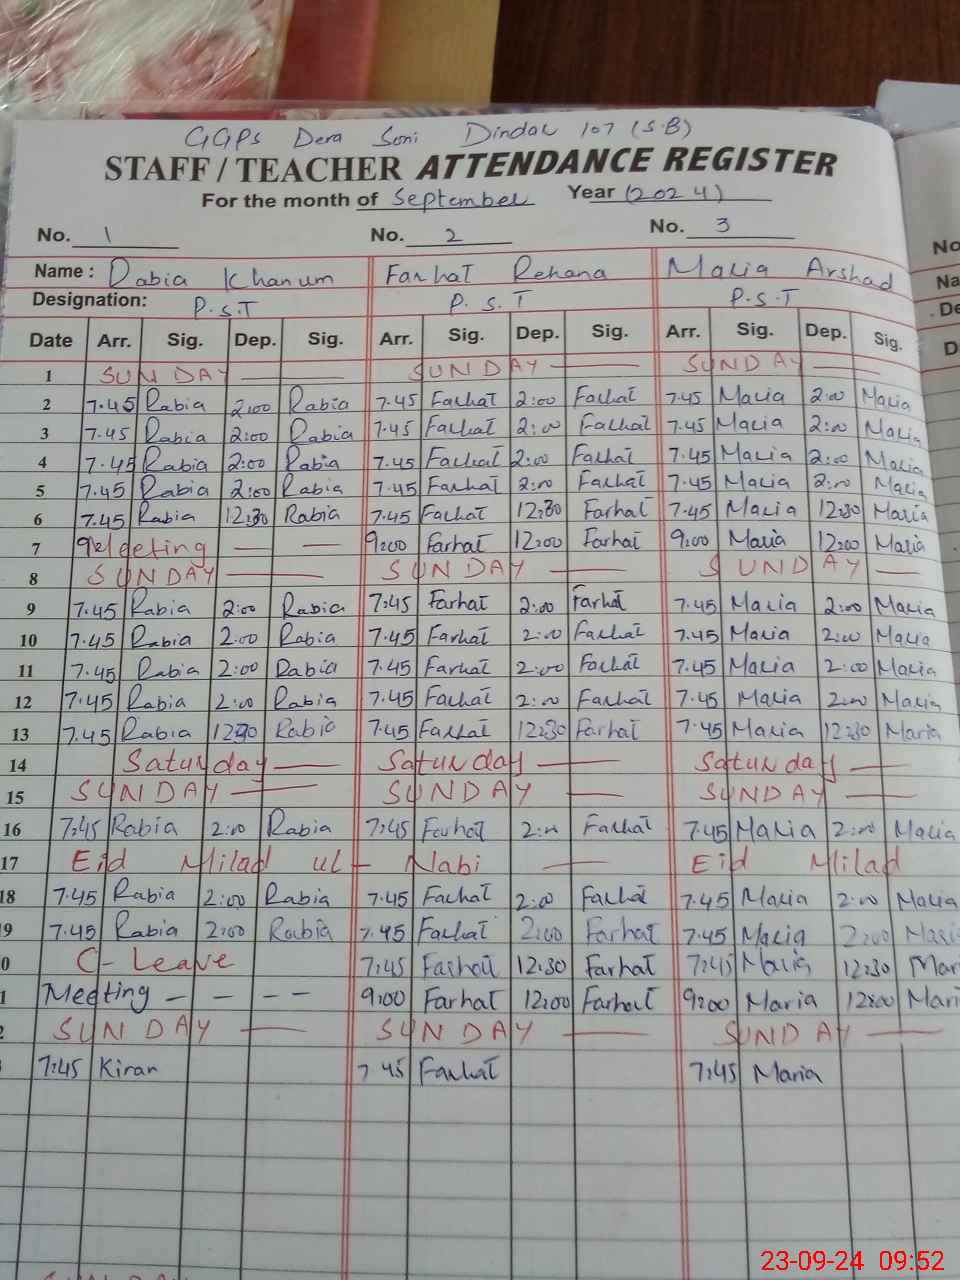 GGPS Dera Soni Dindar 107 (S.B)
STAFF / TEACHER ATTENDANCE REGISTER
For the month of September Year (2024)
No. 1 No. 2 No. 3
Name : Rabia Khanum Farhat Rehana Maria Arshad
Designation: P.S.T P.S.T P.S.T
Date Arr. Sig. Dep. Sig. Arr. Sig. Dep. Sig. Arr. Sig. Dep. Sig.
1 SUNDAY SUNDAY SUNDAY
2 7.45 Rabia 2:00 Rabia 7.45 Farhat 2:00 Farhat 7.45 Maria 2:00 Maria
3 7.45 Rabia 2:00 Rabia 7.45 Farhat 2:00 Farhat 7.45 Maria 2:00 Maria
4 7.45 Rabia 2:00 Rabia 7.45 Farhat 2:00 Farhat 7.45 Maria 2:00 Maria
5 7.45 Rabia 2:00 Rabia 7.45 Farhat 2:00 Farhat 7.45 Maria 2:00 Maria
6 7.45 Rabia 12:30 Rabia 7.45 Farhat 12:30 Farhat 7.45 Maria 12:30 Maria
7 Meeting — — 9:00 Farhat 12:00 Farhat 9:00 Maria 12:00 Maria
8 SUNDAY SUNDAY SUNDAY
9 7.45 Rabia 2:00 Rabia 7:45 Farhat 2:00 Farhat 7.45 Maria 2:00 Maria
10 7.45 Rabia 2:00 Rabia 7.45 Farhat 2:00 Farhat 7.45 Maria 2:00 Maria
11 7.45 Rabia 2:00 Rabia 7.45 Farhat 2:00 Farhat 7.45 Maria 2:00 Maria
12 7.45 Rabia 2:00 Rabia 7.45 Farhat 2:00 Farhat 7.45 Maria 2:00 Maria
13 7.45 Rabia 12:30 Rabia 7.45 Farhat 12:30 Farhat 7.45 Maria 12:30 Maria
14 Saturday Saturday Saturday
15 SUNDAY SUNDAY SUNDAY
16 7:45 Rabia 2:00 Rabia 7:45 Farhat 2:00 Farhat 7.45 Maria 2:00 Maria
17 Eid Milad ul - Nabi Eid Milad
18 7.45 Rabia 2:00 Rabia 7.45 Farhat 2:00 Farhat 7.45 Maria 2:00 Maria
9 7.45 Rabia 2:00 Rabia 7.45 Farhat 2:00 Farhat 7.45 Maria 2:00 Maria
0 C-Leave 7:45 Farhat 12:30 Farhat 7:45 Maria 12:30 Mari
1 Meeting - - - - 9:00 Farhat 12:00 Farhat 9:00 Maria 12:00 Mari
2 SUNDAY SUNDAY SUNDAY
7:45 Kiran 7 45 Farhat 7:45 Maria
No
Na
De
D
23-09-24 09:52